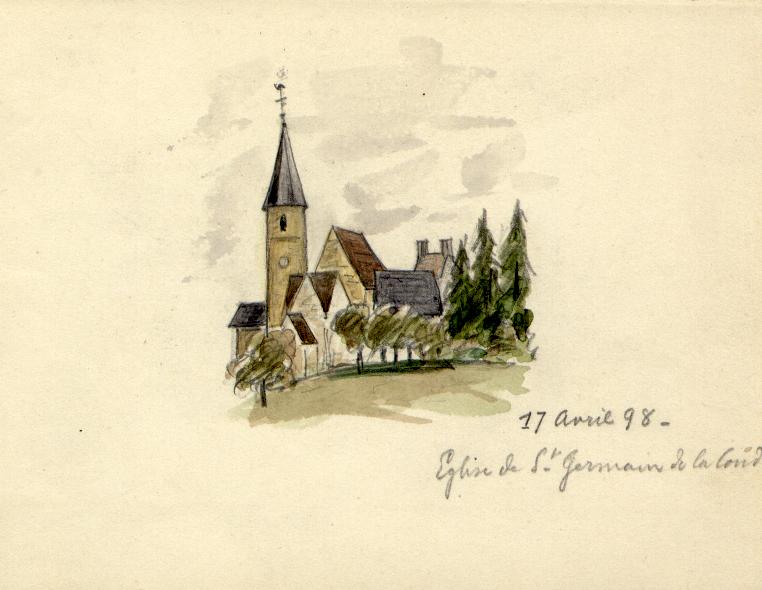 17 Avril 98 -
Eglise de St Germain de la Coud